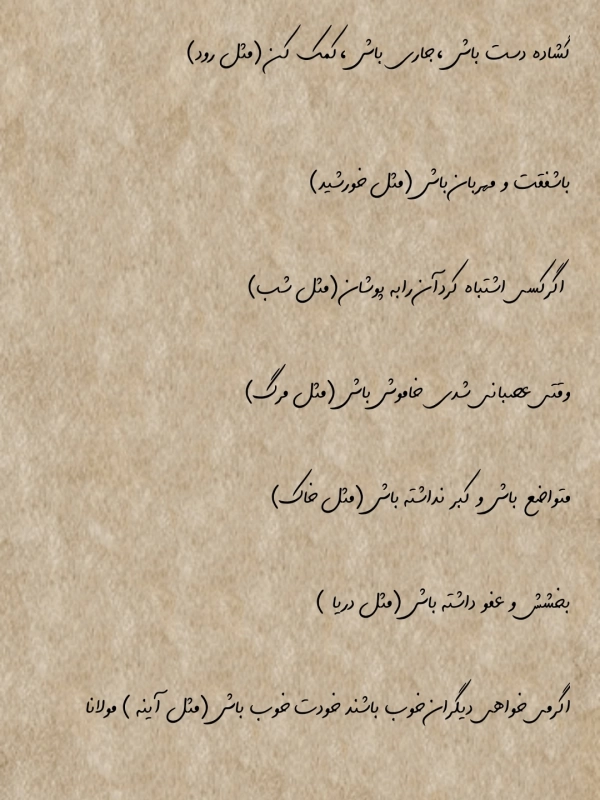 گشاده دست باش ،جاری باش ،کمک کن(مثل رود)
باشفقت و مهربان‌باش (مثل خورشید)
اگرکسی اشتباه کردآن‌رابه پوشان(مثل شب)
وقتی عصبانی شدی خاموش باش (مثل مرگ)
متواضع باش و کبر نداشته باش (مثل خاک)
بخشش و عفو داشته باش (مثل دریا )
اگرمی خواهی دیگران‌خوب باشند خودت خوب باش (مثل آینه ) مولانا